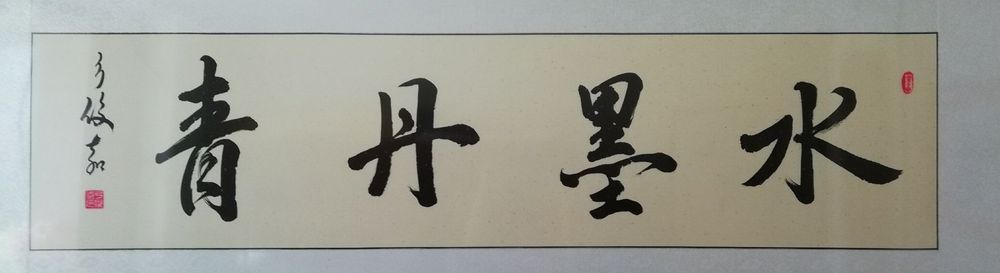 水墨丹青